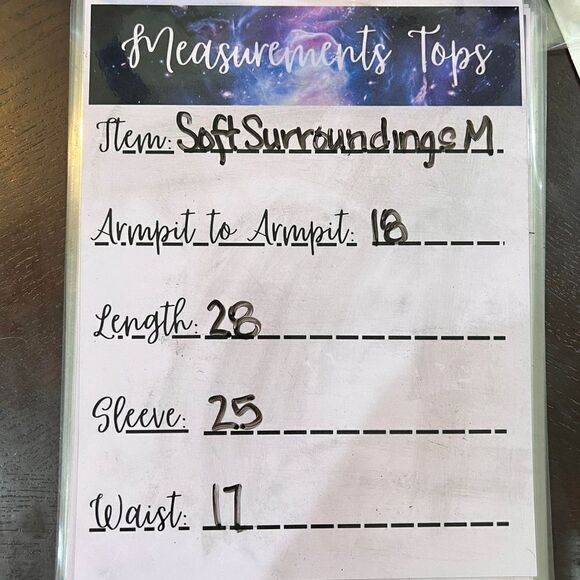 Measurements Tops
Item: Soft Surroundings M
Armpit to Armpit: 18
Length: 28
Sleeve: 25
Waist: 17